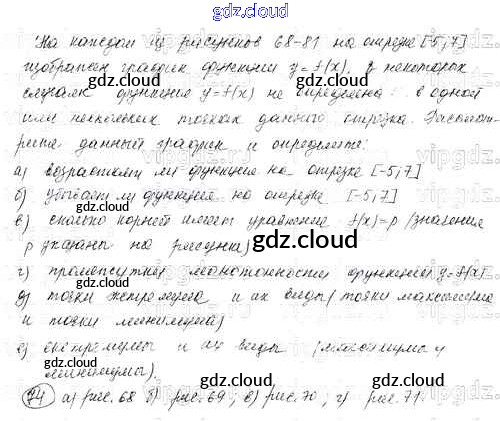 gdz.cloud
На каждом из рисунков 68-81 на отрезке [-5;7]
gdz.cloud
изображен график функции y=f(x), в некоторых
случаях функция y=f(x) не определена в одной
или нескольких точках данного отрезка. Рассмот-
рите данный график и определите:
а) возрастает ли функция на отрезке [-5;7]
б) убывает ли функция на отрезке [-5;7]
в) сколько корней имеет уравнение f(x)=p (значения
p указаны на рисунки)
gdz.cloud
г) промежутки монотонности функции y=f(x)
д) точки экстремума и их виды (точки максимума
и точки минимума)
е) экстремумы и их виды (максимумы и
минимумы).
gdz.cloud
74 а) рис. 68 б) рис. 69, в) рис. 70, г) рис. 71.